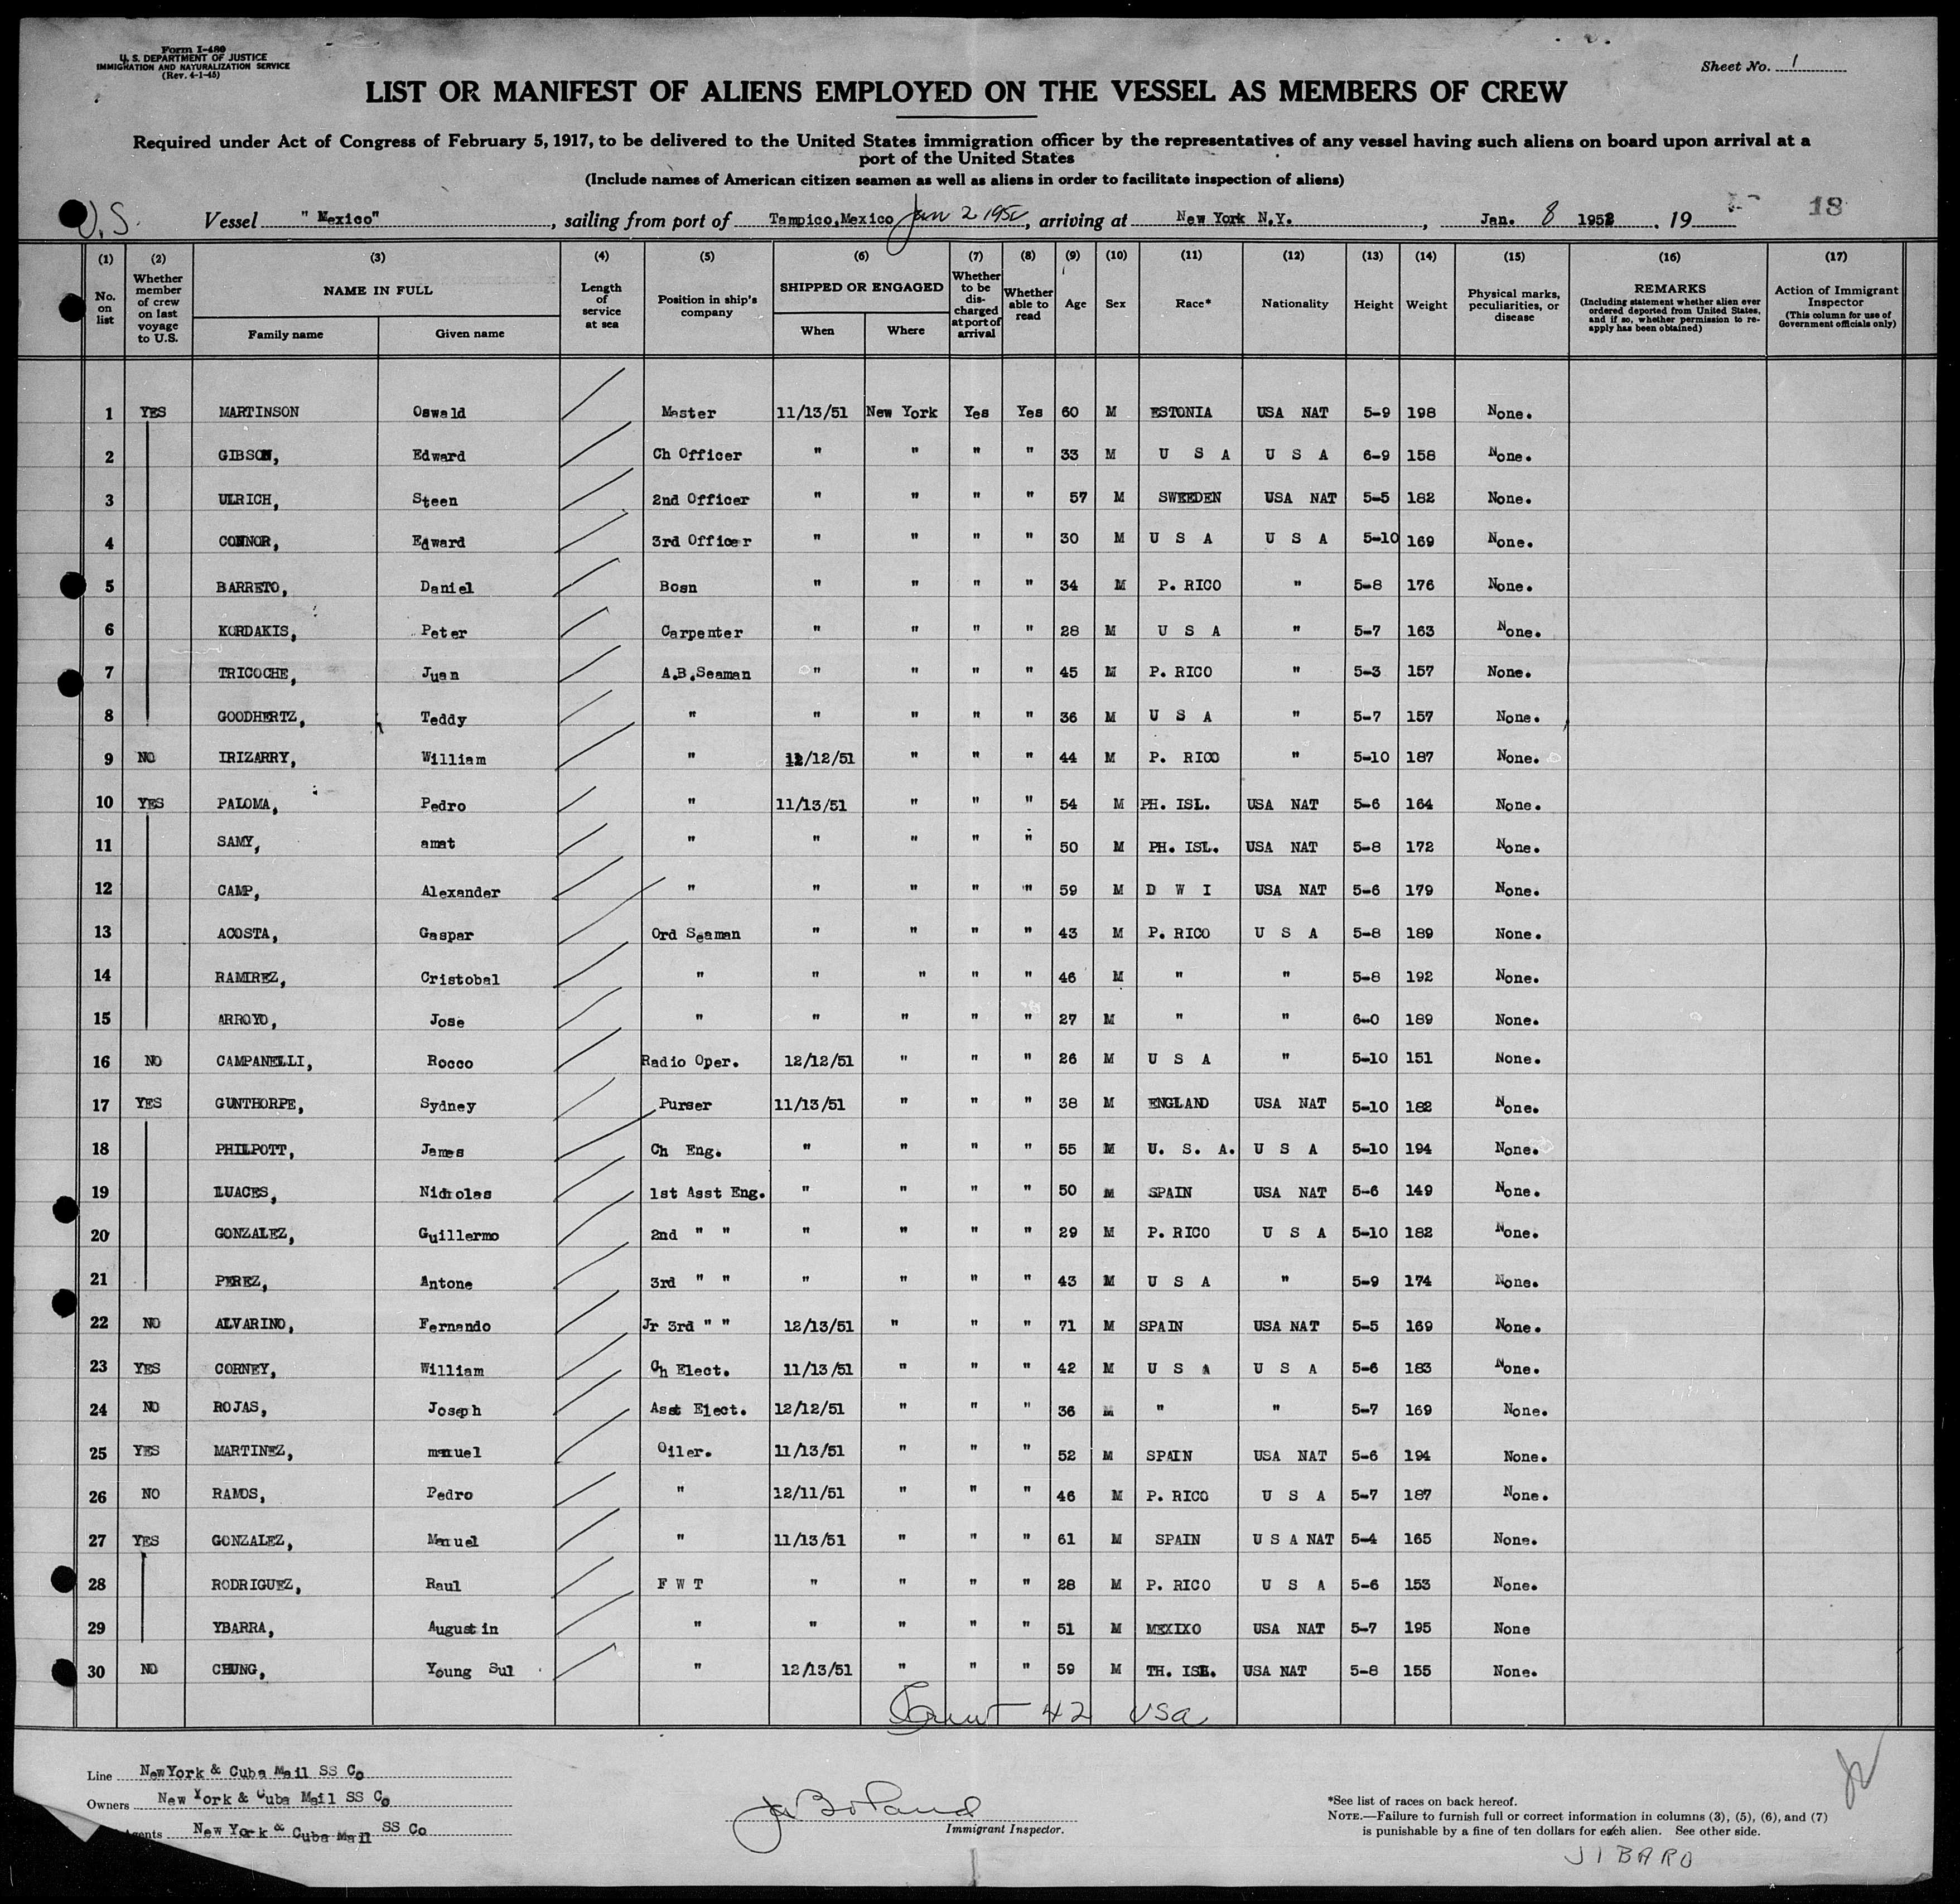 Form I-480
U. S. DEPARTMENT OF JUSTICE
IMMIGRATION AND NATURALIZATION SERVICE
(Rev. 4-1-45)
Sheet No. 1
LIST OR MANIFEST OF ALIENS EMPLOYED ON THE VESSEL AS MEMBERS OF CREW
Required under Act of Congress of February 5, 1917, to be delivered to the United States immigration officer by the representatives of any vessel having such aliens on board upon arrival at a
port of the United States
(Include names of American citizen seamen as well as aliens in order to facilitate inspection of aliens)
U.S. Vessel "Mexico", sailing from port of Tampico, Mexico Jan 2 1952, arriving at New York N.Y., Jan. 8 1952, 19 18
(1) (2) (3) (4) (5) (6) (7) (8) (9) (10) (11) (12) (13) (14) (15) (16) (17)
No. on list
Whether member of crew on last voyage to U.S.
NAME IN FULL
Family name Given name
Length of service at sea
Position in ship's company
SHIPPED OR ENGAGED
When Where
Whether to be discharged at port of arrival
Whether able to read
Age Sex Race* Nationality Height Weight
Physical marks, peculiarities, or disease
REMARKS
(Including statement whether alien ever ordered deported from United States, and if so, whether permission to re-apply has been obtained)
Action of Immigrant Inspector
(This column for use of Government officials only)
1 YES MARTINSON Oswald Master 11/13/51 New York Yes Yes 60 M ESTONIA USA NAT 5-9 198 None.
2 GIBSON, Edward Ch Officer " " " " 33 M U S A U S A 6-9 158 None.
3 ULRICH, Steen 2nd Officer " " " " 57 M SWEEDEN USA NAT 5-5 182 None.
4 CONNOR, Edward 3rd Officer " " " " 30 M U S A U S A 5-10 169 None.
5 BARRETO, Daniel Bosn " " " " 34 M P. RICO " 5-8 176 None.
6 KORDAKIS, Peter Carpenter " " " " 28 M U S A " 5-7 163 None.
7 TRICOCHE, Juan A.B.Seaman " " " " 45 M P. RICO " 5-3 157 None.
8 GOODHERTZ, Teddy " " " " " 36 M U S A " 5-7 157 None.
9 NO IRIZARRY, William " 12/12/51 " " " 44 M P. RICO " 5-10 187 None.
10 YES PALOMA, Pedro " 11/13/51 " " " 54 M PH. ISL. USA NAT 5-6 164 None.
11 SAMY, amat " " " " " 50 M PH. ISL. USA NAT 5-8 172 None.
12 CAMP, Alexander " " " " " 59 M D W I USA NAT 5-6 179 None.
13 ACOSTA, Gaspar Ord Seaman " " " " 43 M P. RICO U S A 5-8 189 None.
14 RAMIREZ, Cristobal " " " " " 46 M " " 5-8 192 None.
15 ARROYO, Jose " " " " " 27 M " " 6-0 189 None.
16 NO CAMPANELLI, Rocco Radio Oper. 12/12/51 " " " 26 M U S A " 5-10 151 None.
17 YES GUNTHORPE, Sydney Purser 11/13/51 " " " 38 M ENGLAND USA NAT 5-10 182 None.
18 PHILPOTT, James Ch Eng. " " " " 55 M U. S. A. U S A 5-10 194 None.
19 LUACES, Nicholas 1st Asst Eng. " " " " 50 M SPAIN USA NAT 5-6 149 None.
20 GONZALEZ, Guillermo 2nd " " " " " " 29 M P. RICO U S A 5-10 182 None.
21 PEREZ, Antone 3rd " " " " " " 43 M U S A " 5-9 174 None.
22 NO ALVARINO, Fernando Jr 3rd " " 12/13/51 " " " 71 M SPAIN USA NAT 5-5 169 None.
23 YES CORNEY, William Ch Elect. 11/13/51 " " " 42 M U S A U S A 5-6 183 None.
24 NO ROJAS, Joseph Asst Elect. 12/12/51 " " " 36 M " " 5-7 169 None.
25 YES MARTINEZ, manuel Oiler. 11/13/51 " " " 52 M SPAIN USA NAT 5-6 194 None.
26 NO RAMOS, Pedro " 12/11/51 " " " 46 M P. RICO U S A 5-7 187 None.
27 YES GONZALEZ, Manuel " 11/13/51 " " " 61 M SPAIN U S A NAT 5-4 165 None.
28 RODRIGUEZ, Raul F W T " " " " 28 M P. RICO U S A 5-6 153 None.
29 YBARRA, Augustin " " " " " 51 M MEXIXO USA NAT 5-7 195 None
30 NO CHUNG, Young Sul " 12/13/51 " " " 59 M TH. ISL. USA NAT 5-8 155 None.
42 USA
Line New York & Cuba Mail SS Co
Owners New York & Cuba Mail SS Co
Agents New York & Cuba Mail SS Co
Immigrant Inspector.
*See list of races on back hereof.
NOTE.—Failure to furnish full or correct information in columns (3), (5), (6), and (7)
is punishable by a fine of ten dollars for each alien. See other side.
JIBARO